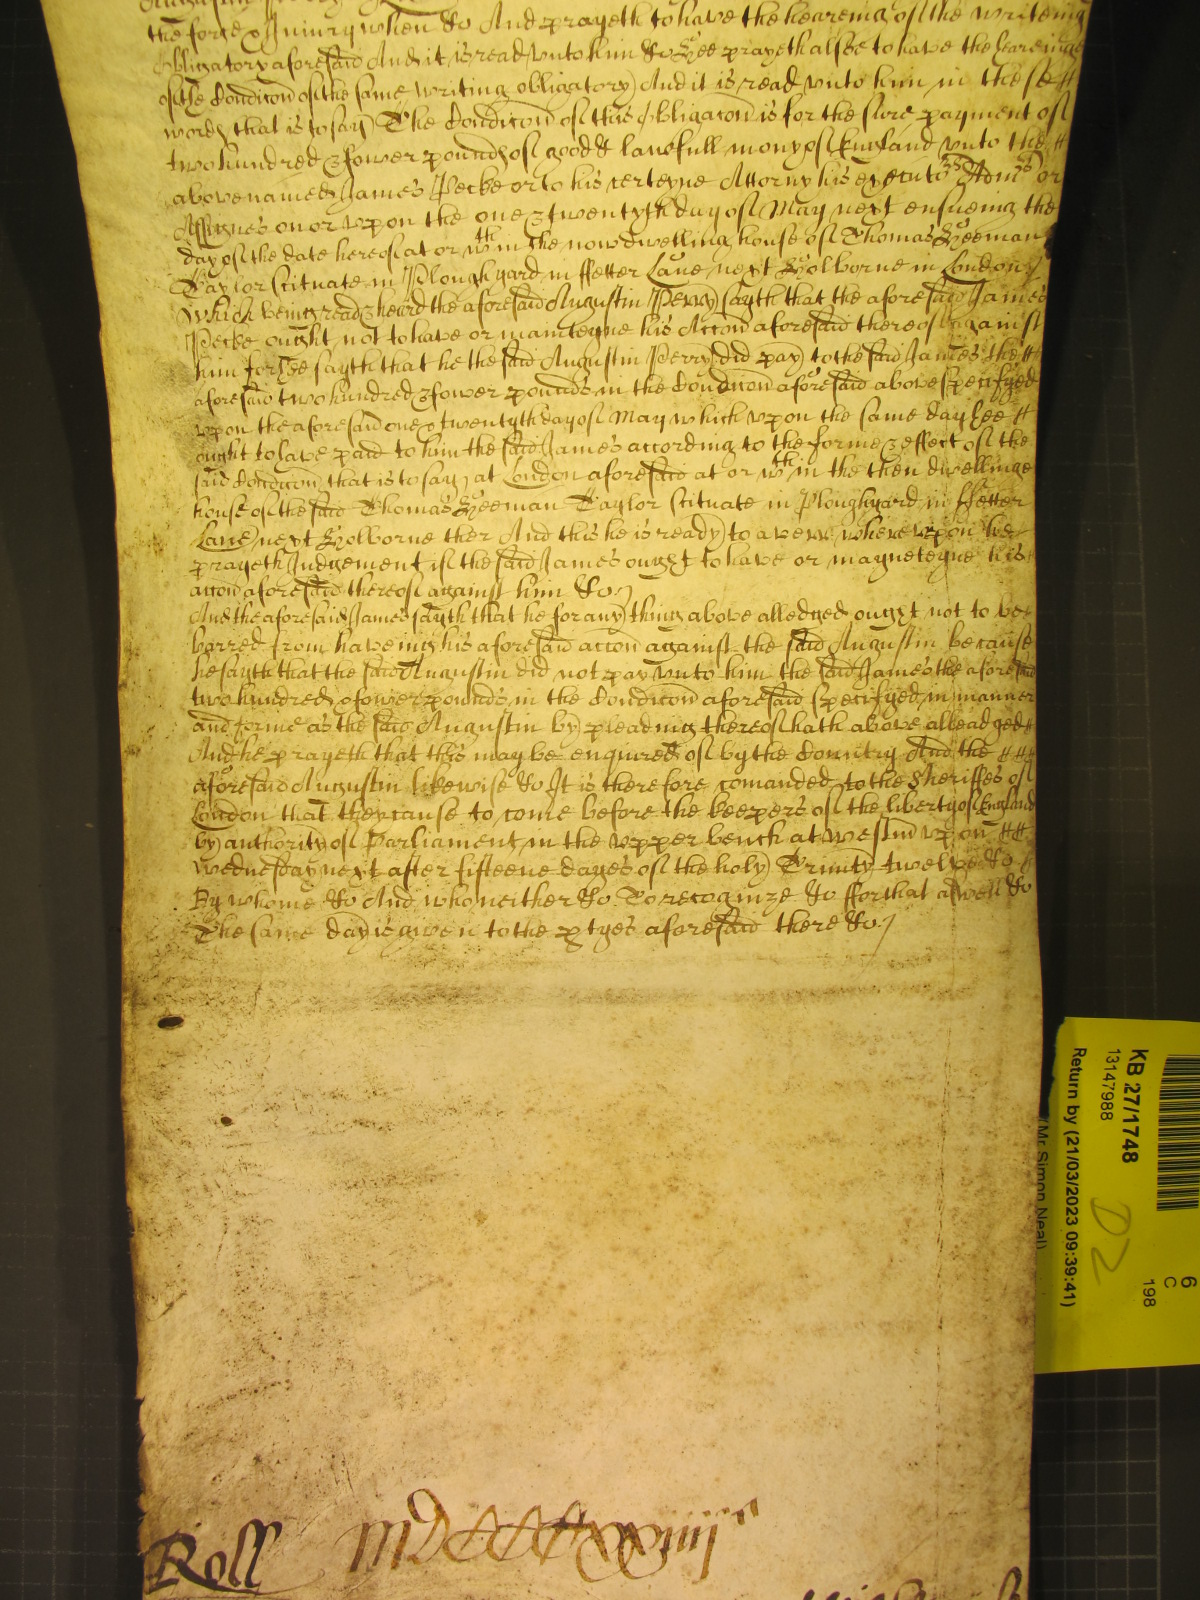 the force & Iniury when &c And prayeth to have the heareing of the writeing
obligatory aforesaid And it is read vnto him &c Hee prayeth alsoe to have the heareinge
of the Condicon of the same writing obligatory And it is read vnto him in these
words that is to say The Condicon of this obligacon is for the sure payment of
two hundred & fower pounds of good & lawfull mony of England vnto the
abovenamed James Pecke or to his certeyne Attorny his executors Admrs or
Assignes on or vpon the one & twentyth day of May next ensueing the
day of the date hereof at or wth in the now dwelling house of Thomas Heeman
Taylor scituate in Plough yard in ffetter Lane next Holborne in London
Which being read & heard the aforesaid Augustin Perry sayth that the aforesaid James
Pecke ought not to have or mainteyne his Accon aforesaid thereof against
him for Hee sayth that he the said Augustin Perry did pay to the said James the
aforesaid two hundred & fower pounds in the Condicon aforesaid above specifyed
vpon the aforesaid one & twentyth day of May which vpon the same day hee
ought to have paid to him the said James according to the forme & effect of the
said Condicon that is to say at London aforesaid at or wth in the then dwellinge
house of the said Thomas Heeman Taylor scituate in Ploughyard in ffetter
Lane next Holborne ther And this he is ready to averr whereupon he
prayeth Iudgement if the said James ought to have or mayneteyne his
accon aforesaid thereof against him &c
And the aforesaid James sayth that he for any thing above alledged ought not to be
barred from haveing his aforesaid accon against the said Augustin because
he sayth that the said Augustin did not pay vnto him the said James the aforesaid
two hundred & fower pounds in the Condicon aforesaid specifyed in manner
and forme as the said Augustin by pleading thereof hath above alleadged
And he prayeth that this may be enquired of by the Country And the
aforesaid Augustin likewise &c It is therefore comanded to the Sheriffes of
London that they cause to come before the keepers of the liberty of England
by authority of Parliament in the vpper bench at westm vpon
Wednesday next after fifteene dayes of the holy Trinity twelve &c
By whome &c And who neither &c To recognize &c fforthat aswell &c
The same day is given to the ptyes aforesaid there &c
Roll MDCCCCxxiiii
KB 27/1748
13147988
Return by (21/03/2023 09:39:41)
(Mr Simon Neal)
D2
6
C
198